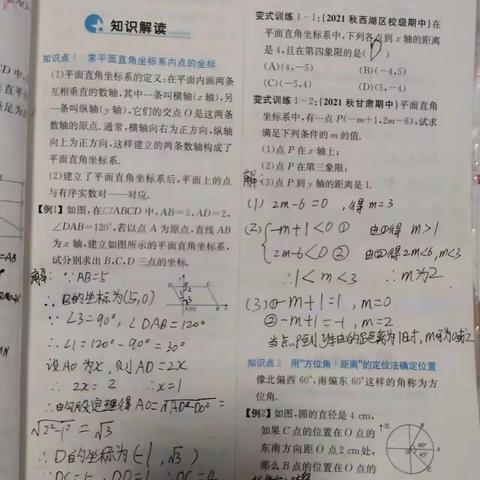 知识解读
知识点1 求平面直角坐标系内点的坐标
(1)平面直角坐标系的定义:在平面内画两条
互相垂直的数轴,其中一条叫横轴(x轴),另
一条叫纵轴(y轴),它们的交点O是这两条
数轴的原点.通常,横轴向右为正方向,纵轴
向上为正方向,这样建立的两条数轴构成了
平面直角坐标系.
(2)建立了平面直角坐标系后,平面上的点
与有序实数对一一对应.
【例1】如图,在▱ABCD中,AB=5,AD=2,
∠DAB=120°,若以点A为原点,直线AB
为x轴,建立如图所示的平面直角坐标系,
试分别求出B,C,D三点的坐标.
解: ∵AB=5
∴B的坐标为(5,0)
∵∠3=90°,∠DAB=120°
∴∠1=120°-90°=30°
设AO为x,则AD=2x
∴ 2x=2 ∴x=1
∴由勾股定理得AO=√AD²-DO²=
√2²-1²=√3
∴D的坐标为(-1,√3)
变式训练1-1:(2021秋西湖区校级期中)在
平面直角坐标系中,下列各点到x轴的距离
是4,且在第四象限的是( D )
(A)(4,-5) (B)(-4,5)
(C)(-5,4) (D)(5,-4)
变式训练1-2:(2021秋甘肃期中)平面直角
坐标系中,有一点P(-m+1,2m-6),试求
满足下列条件的m的值.
(1)点P在x轴上;
(2)点P在第三象限;
解:(3)点P到y轴的距离是1.
(1) 2m-6=0 ,得m=3
(2) -m+1<0 ① 由①得 m>1
2m-6<0 ② 由②得2m<6,m<3
∴1<m<3 ∴m为2.
(3)①-m+1=1 , m=0
②-m+1=-1, m=2
知识点2 用“方位角+距离”的定位法确定位置
像北偏西60°,南偏东60°这样的角称为方
位角.
【例2】如图,圆的直径是4 cm,
如果C点的位置在O点的
东南方向距O点2 cm处,
那么B点的位置在O点的
北
60°
45°